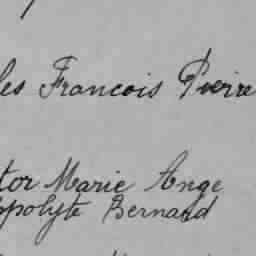 les Francois Pierre
tor Marie Ange
ppolyte Bernard